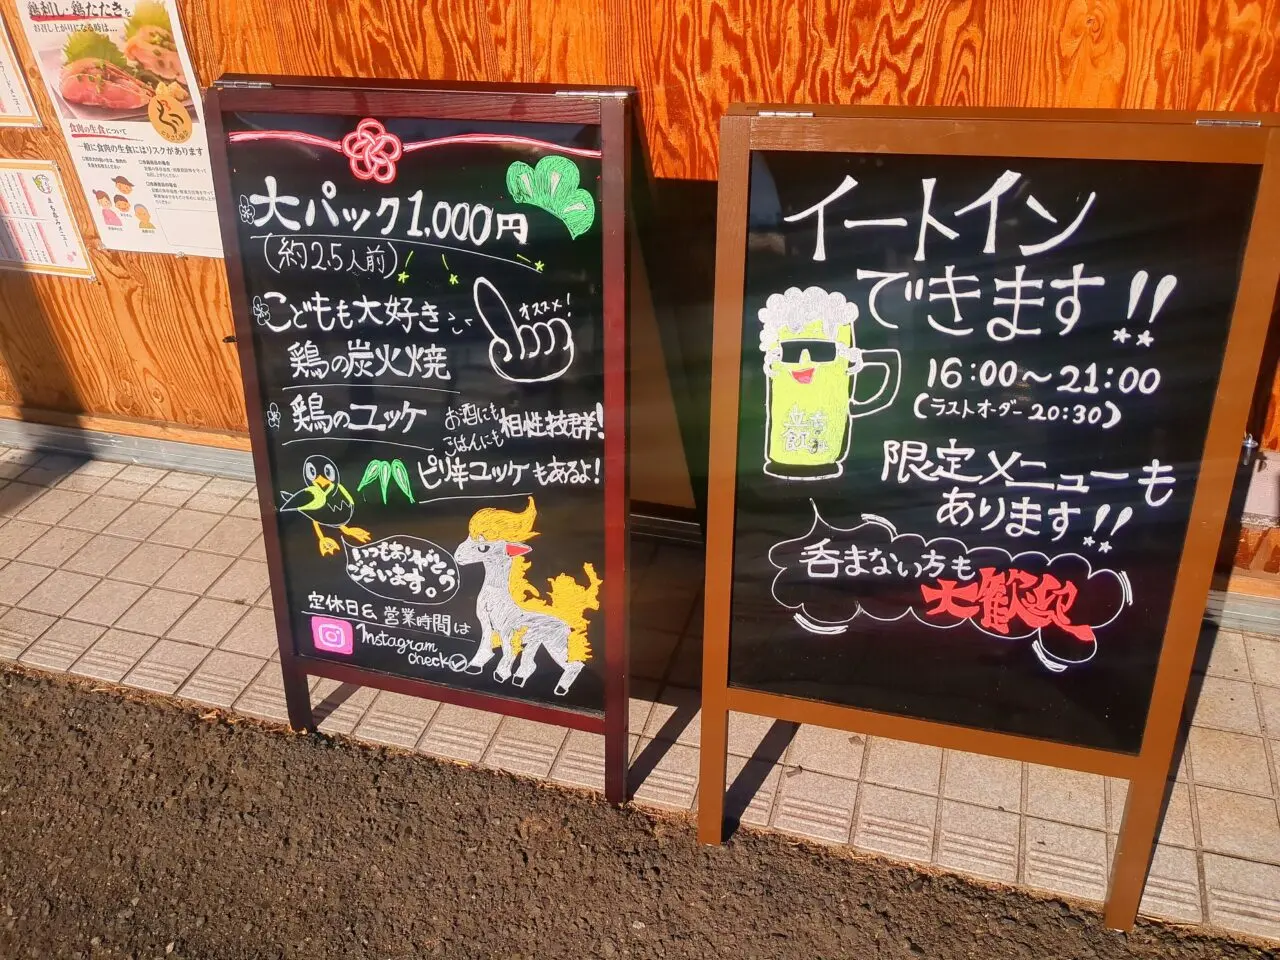 鶏刺し・鶏たたきを
お召し上がりになる時は…
食肉の生食について
一般に食肉の生食にはリスクがあります
大パック1,000円
(約2.5人前)
こどもも大好き
オススメ!
鶏の炭火焼
鶏のユッケ
お酒にも
ごはんにも
相性抜群!
ピリ辛ユッケもあるよ!
いつもありがとう
ございます。
定休日& 営業時間は
Instagram
check
イートイン
できます!!
16:00〜21:00
(ラストオーダー 20:30)
限定メニューも
あります!!
呑まない方も
大歓迎